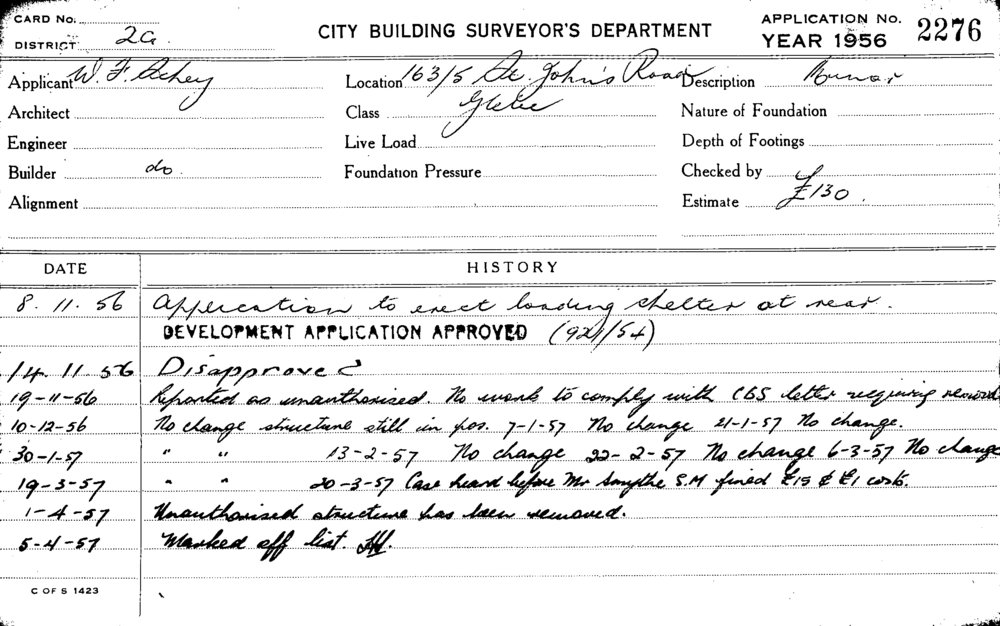 CARD No.
DISTRICT 2G
CITY BUILDING SURVEYOR'S DEPARTMENT
APPLICATION No. 2276
YEAR 1956
Applicant W. F. Location 163/5 St. John's Road Description Minor
Architect Class Glebe Nature of Foundation
Engineer Live Load Depth of Footings
Builder do. Foundation Pressure Checked by
Alignment Estimate £130.
DATE HISTORY
8. 11. 56 Application to erect loading shelter at rear.
DEVELOPMENT APPLICATION APPROVED (921/54)
14. 11. 56 Disapproved
19-11-56 Reported as unauthorised. No work to comply with CBS letter requiring removal
10-12-56 No change structure still in pos. 7-1-57 No change 21-1-57 No change.
30-1-57 " " 13-2-57 No change 22-2-57 No change 6-3-57 No change
19-3-57 " " 20-3-57 Case heard before Mr Smythe S.M fined £15 & £1 costs.
1-4-57 Unauthorised structure has been removed.
5-4-57 Marked off list.
C OF S 1423